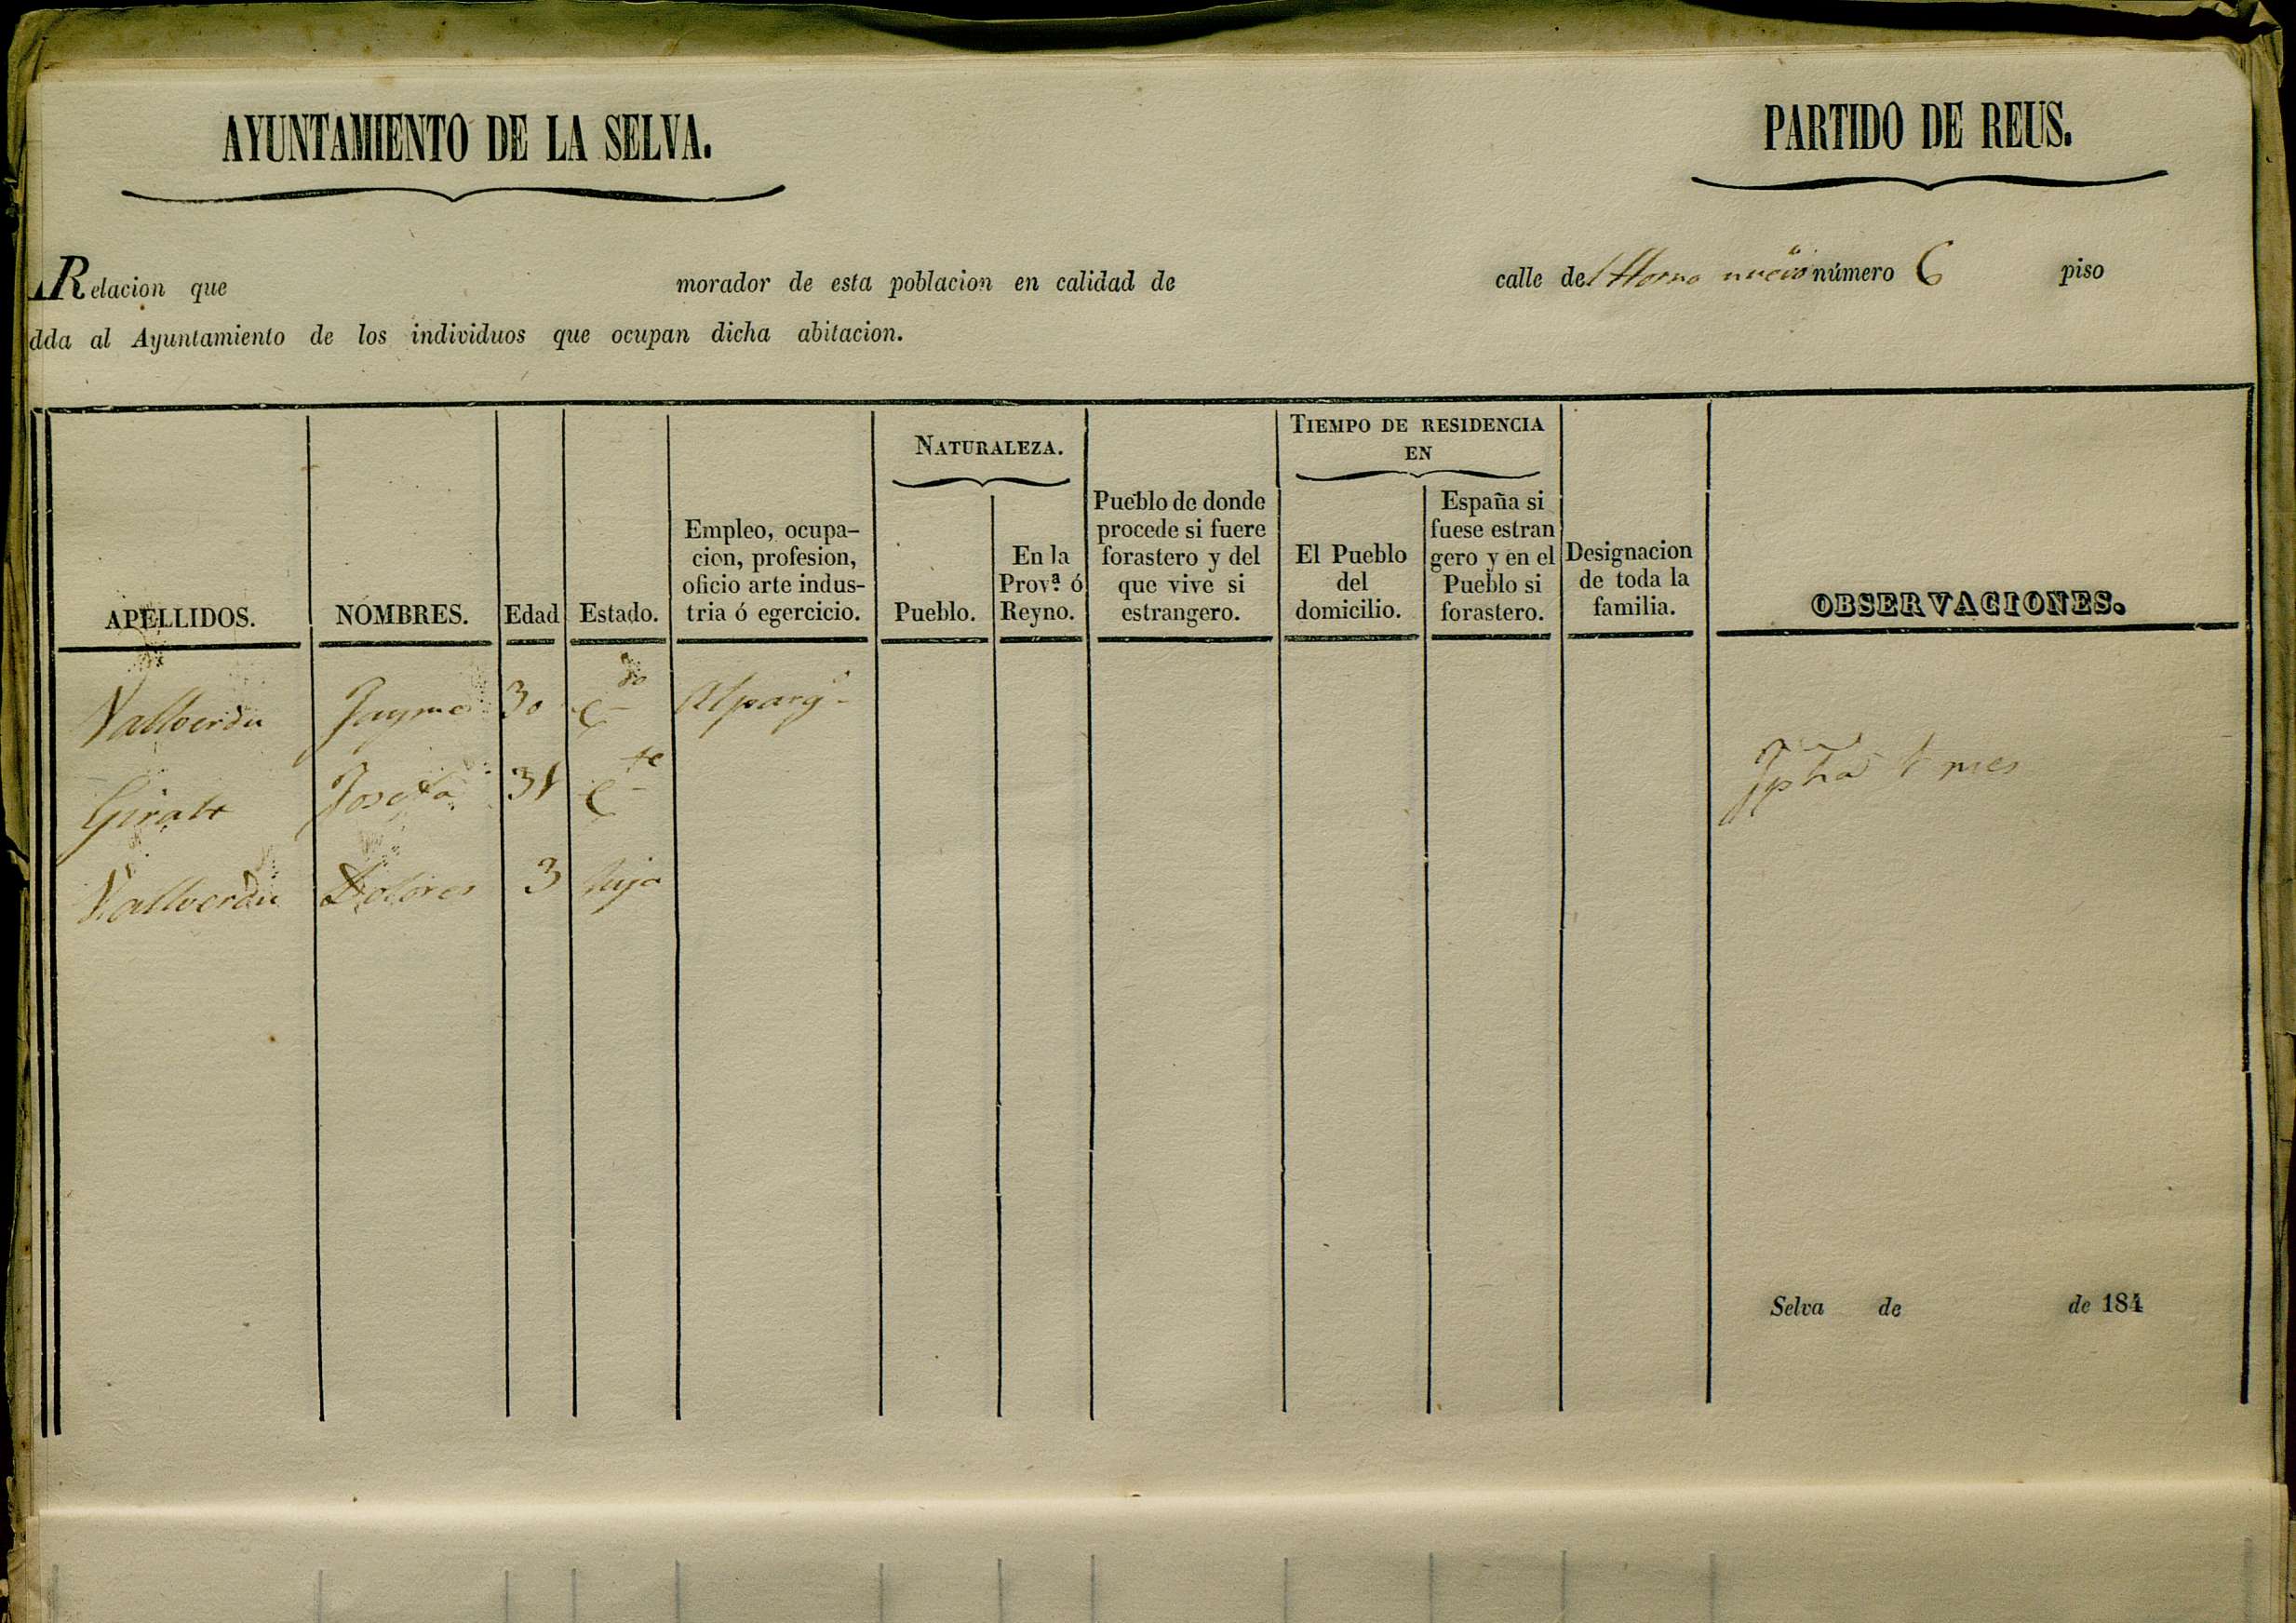 AYUNTAMIENTO DE LA SELVA.
PARTIDO DE REUS.
Relacion que morador de esta poblacion en calidad de calle del Horno nuevo número 6 piso
dda al Ayuntamiento de los individuos que ocupan dicha abitacion.
APELLIDOS.
NOMBRES.
Edad
Estado.
Empleo, ocupa-
cion, profesion,
oficio arte indus-
tria ó egercicio.
NATURALEZA.
Pueblo.
En la
Provª ó
Reyno.
Pueblo de donde
procede si fuere
forastero y del
que vive si
estrangero.
TIEMPO DE RESIDENCIA
EN
El Pueblo
del
domicilio.
España si
fuese estran
gero y en el
Pueblo si
forastero.
Designacion
de toda la
familia.
OBSERVACIONES.
Vallverdu Jayme 30 C.do Alparg.
Josefa 31 C.te
Vallverdu Dolores 3 hija
Selva de de 184